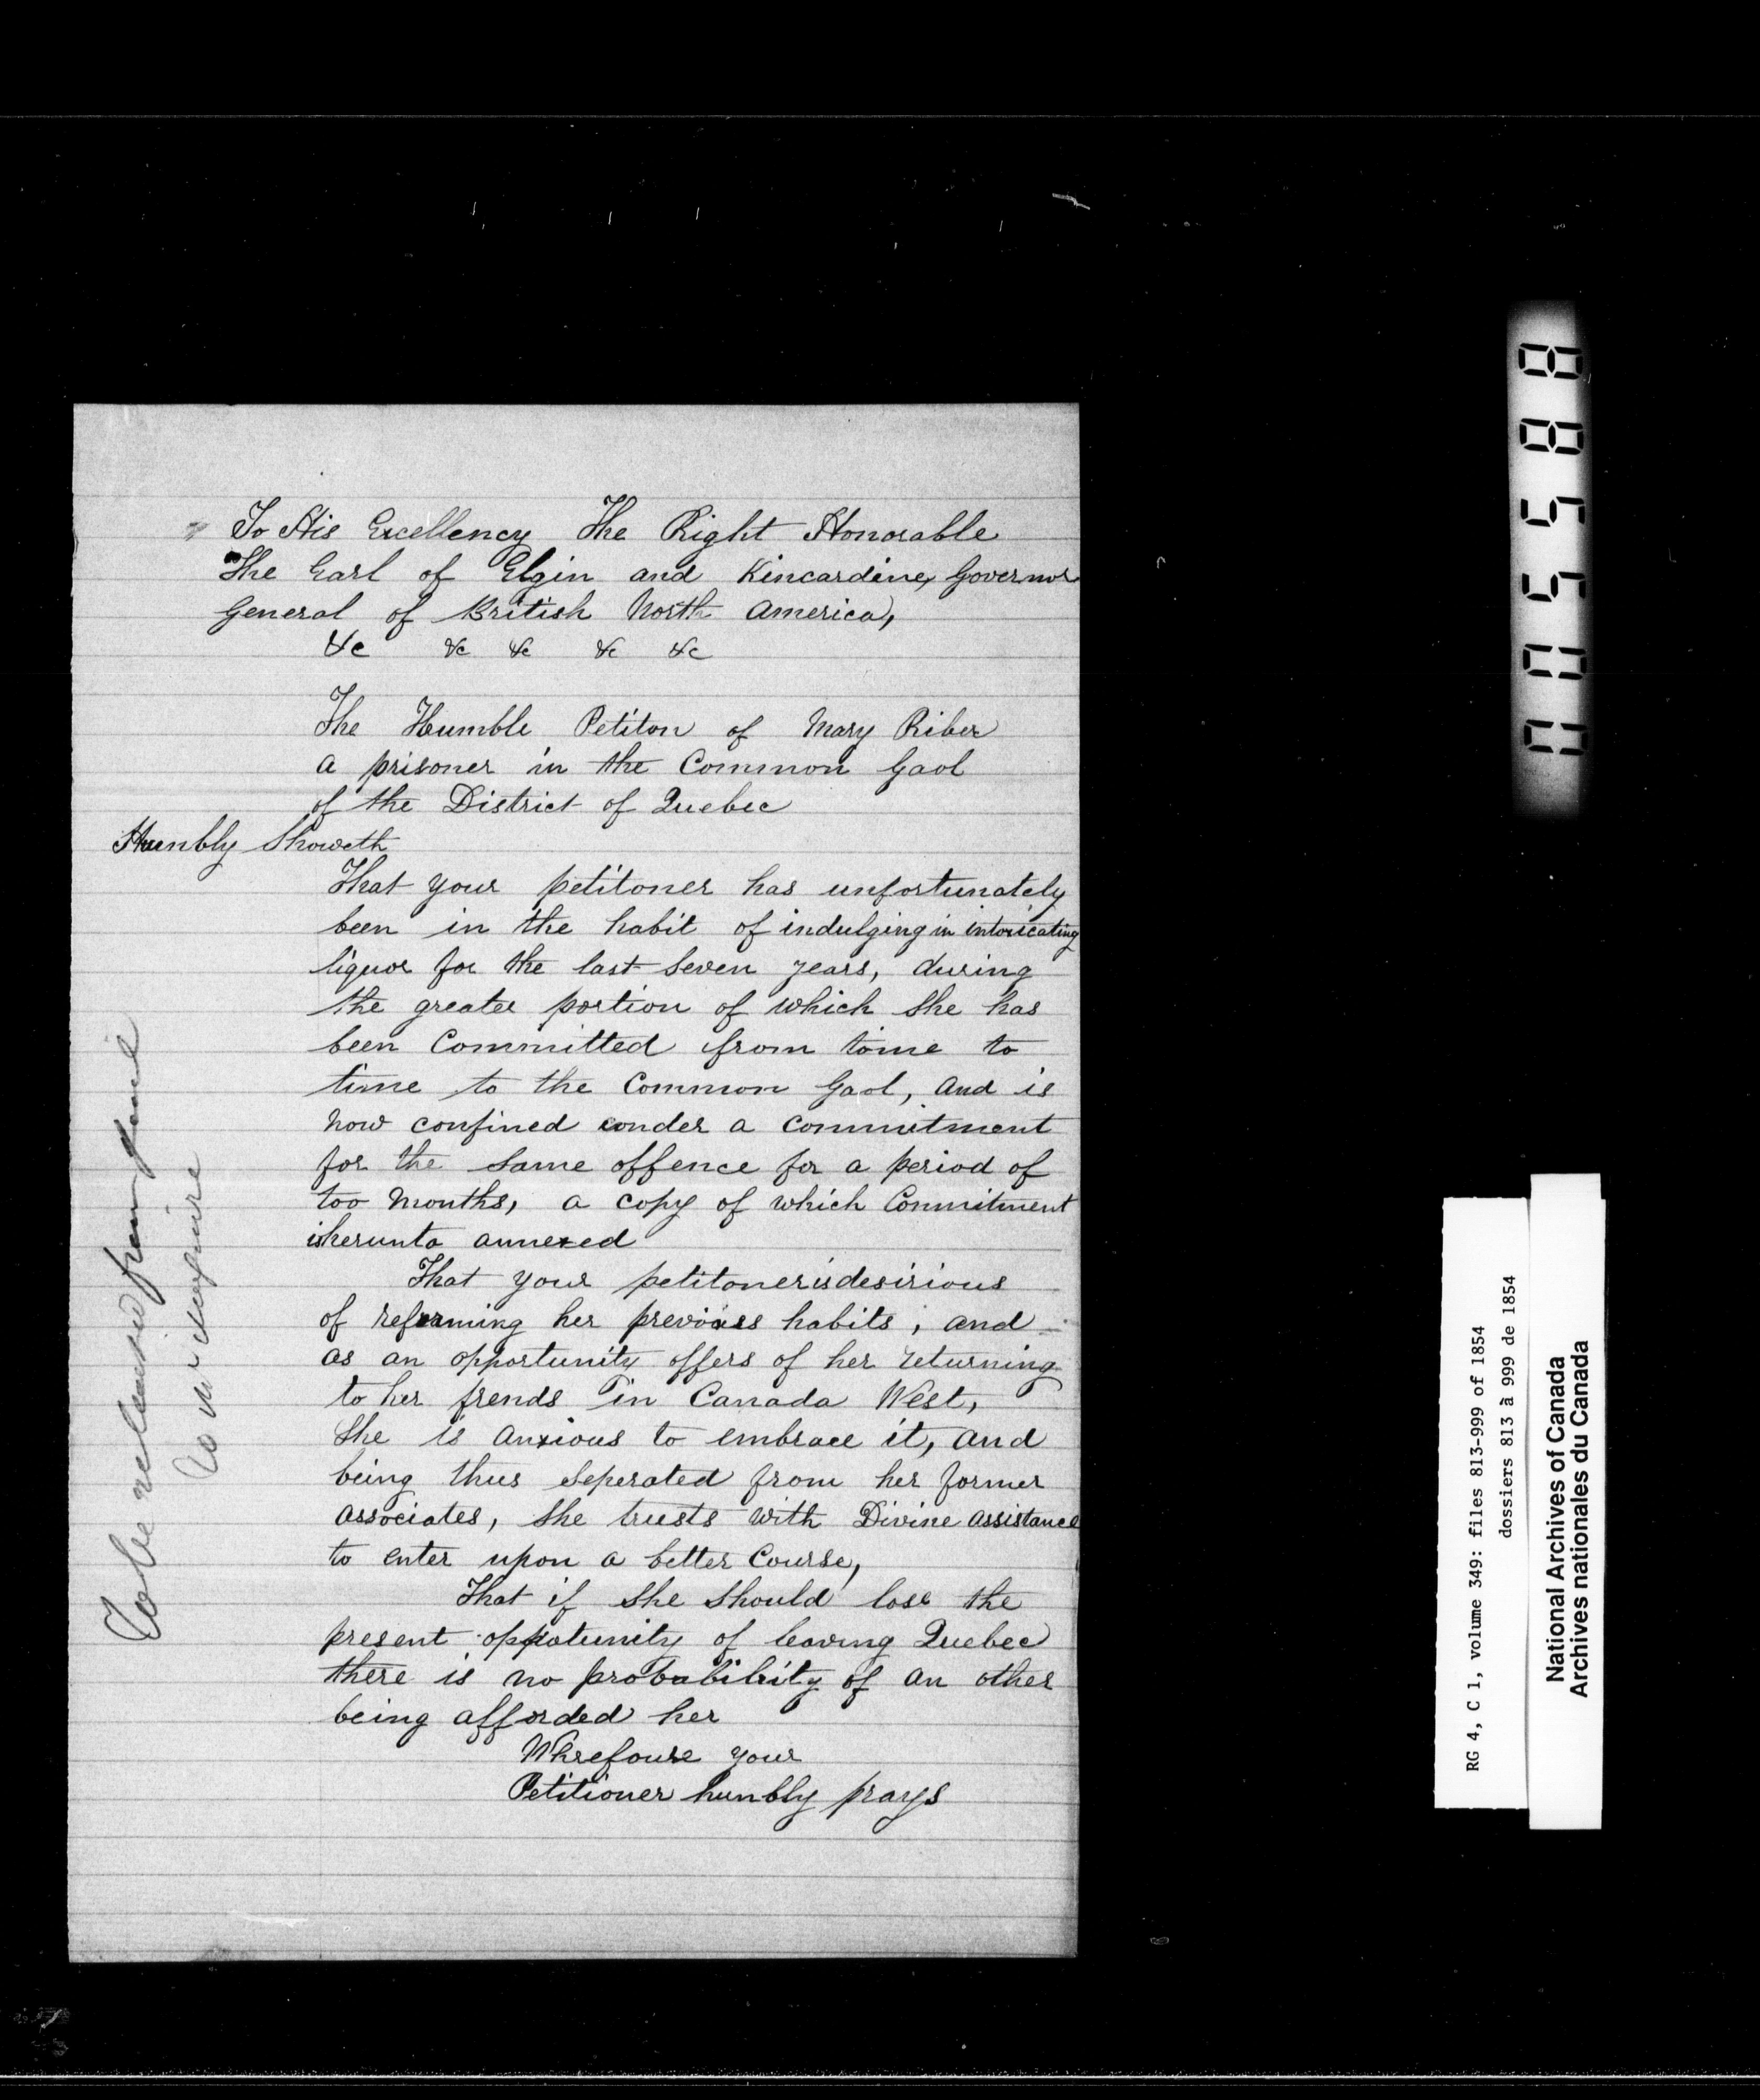 To His Excellency The Right Honorable
The Earl of Elgin and Kincardine, Governor
General of British North America,
&c &c &c &c &c
The Humble Petiton of Mary Riber
a prisoner in the Common Gaol
of the District of Quebec
Humbly Showeth
That your petitoner has unfortunately
been in the habit of indulging in intoxicating
liquor for the last Seven years, during
the greater portion of which She has
been Committed from tome to
time to the Common Gaol, and is
now confined under a commitment
for the Same offence for a period of
too Months, a copy of which Commitment
is herunto annexed
That your petitoner is desirious
of reforming her previous habits, and
as an opportunity offers of her returning
to her frends in Canada West,
She is anxious to embrace it, and
being thus Seperated from her former
associates, She trusts with Divine assistance
to enter upon a better Course,
That if She Should lose the
present oppotunity of leaving Quebec
there is no probability of an other
being afforded her
Wherefoure your
Petitioner humbly prays
To be released from
RG 4, C 1, volume 349: files 813-999 of 1854
dossiers 813 à 999 de 1854
National Archives of Canada
Archives nationales du Canada
005588